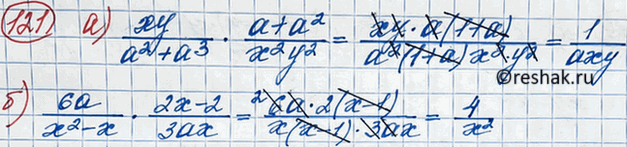 121. а) xy/(a²+a³) · (a+a²)/(x²y²) = (xy · a(1+a))/(a²(1+a)x² · y²) = 1/(axy)
©reshak.ru
б) 6a/(x²-x) · (2x-2)/(3ax) = (²6a · 2(x-1))/(x(x-1) · 3ax) = 4/x²